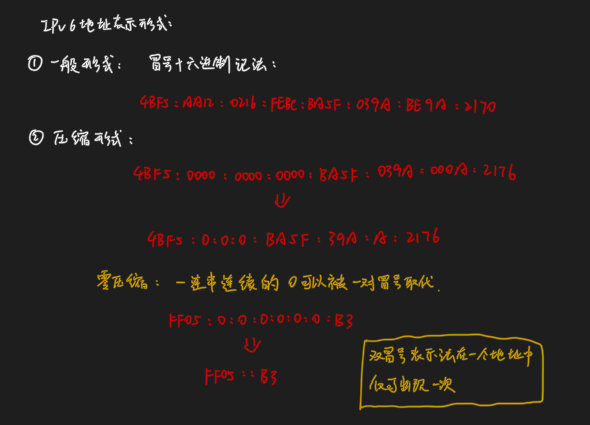 IPv6地址表示形式:
① 一般形式: 冒号十六进制记法:
4BF5:AA12:0216:FEBC:BA5F:039A:BE9A:2170
② 压缩形式:
4BF5:0000:0000:0000:BA5F:039A:000A:2176
⇓
4BF5:0:0:0:BA5F:39A:A:2176
零压缩: 一连串连续的0可以被一对冒号取代.
FF05:0:0:0:0:0:0:B3
⇓
FF05::B3
双冒号表示法在一个地址中
仅可出现一次